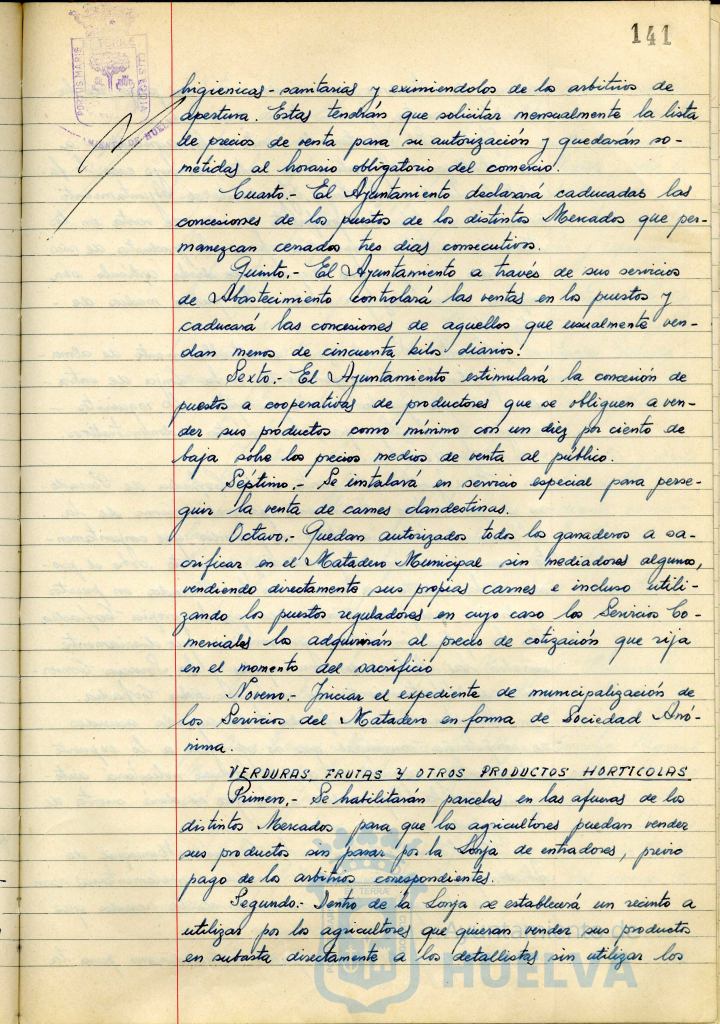 141
higienicas-sanitarias y eximiendolos de los arbitrios de
apertura. Estas tendrán que solicitar mensualmente la lista
de precios de venta para su autorización y quedarán so-
metidas al horario obligatorio del comercio.
Cuarto.- El Ayuntamiento declarará caducadas las
concesiones de los puestos de los distintos Mercados que per-
manezcan cerrados tres dias consecutivos.
Quinto.- El Ayuntamiento a través de sus servicios
de Abastecimiento controlará las ventas en los puestos y
caducará las concesiones de aquellos que usualmente ven-
dan menos de cincuenta kilos diarios.
Sexto.- El Ayuntamiento estimulará la concesión de
puestos a cooperativas de productores que se obliguen a ven-
der sus productos como mínimo con un diez por ciento de
baja sobre los precios medios de venta al público.
Séptimo.- Se instalará en servicio especial para perse-
guir la venta de carnes clandestinas.
Octavo.- Quedan autorizados todos los ganaderos a sa-
crificar en el Matadero Municipal sin mediadores algunos,
vendiendo directamente sus propias carnes e incluso utili-
zando los puestos reguladores en cuyo caso los Servicios Co-
merciales los adquirirán al precio de cotización que rija
en el momento del sacrificio
Noveno.- Iniciar el expediente de municipalización de
los Servicios del Matadero en forma de Sociedad Anó-
nima.
VERDURAS, FRUTAS Y OTROS PRODUCTOS HORTICOLAS
Primero.- Se habilitarán parcelas en las afueras de los
distintos Mercados para que los agricultores puedan vender
sus productos sin pasar por la Lonja de entradores, previo
pago de los arbitrios correspondientes.
Segundo.- Dentro de la Lonja se establecerá un recinto a
utilizar por los agricultores que quieran vender sus productos
en subasta directamente a los detallistas sin utilizar los
HUELVA